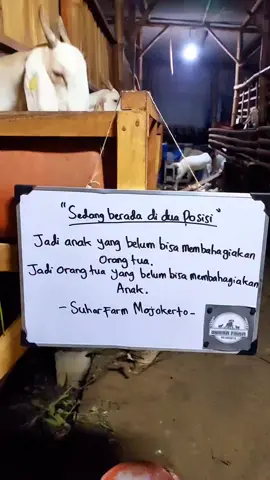 "Sedang berada di dua posisi"
Jadi anak yang belum bisa membahagiakan
Orang tua.
Jadi Orang tua yang belum bisa membahagiakan
Anak.
- Suhar Farm Mojokerto -
SUHAR FARM